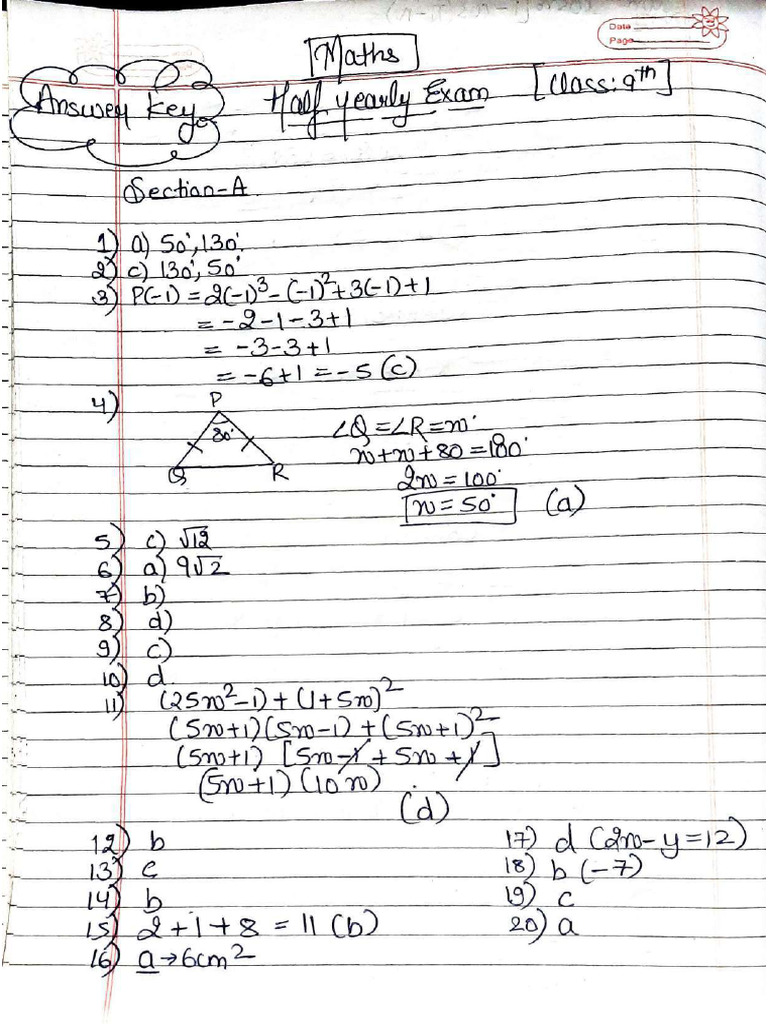 Date
Page
Maths
Answer key
Half yearly Exam [Class: 9th]
Section-A
1) a) 50°, 130°.
2) c) 130°, 50°
3) P(-1) = 2(-1)³ - (-1)² + 3(-1) + 1
= -2 - 1 - 3 + 1
= -3 - 3 + 1
= -6 + 1 = -5 (c)
4)
P
80°
Q R
∠Q = ∠R = x°
x + x + 80 = 180°
2x = 100°
x = 50° (a)
5) c) √12
6) a) 9√2
7) b)
8) d)
9) c)
10) d.
11) (25x² - 1) + (1 + 5x)²
(5x + 1) (5x - 1) + (5x + 1)²
(5x + 1) [5x - 1 + 5x + 1]
(5x + 1) (10x)
(d)
12) b
13) c
14) b
15) 2 + 1 + 8 = 11 (b)
16) a → 6cm²
17) d (2x - y = 12)
18) b (-7)
19) c
20) a